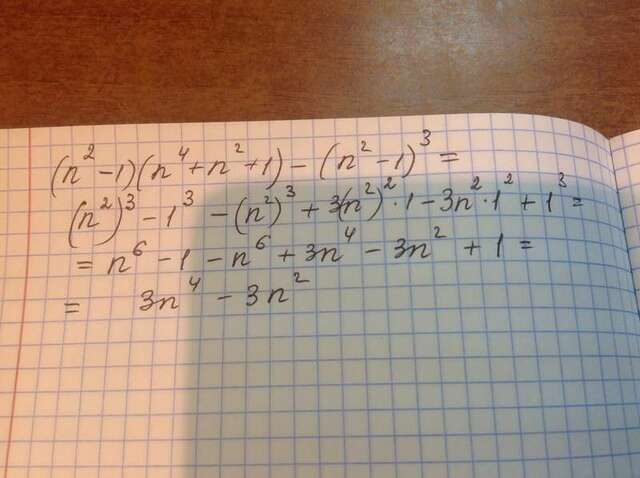 (n² - 1)(n⁴ + n² + 1) - (n² - 1)³ =
(n²)³ - 1³ - (n²)³ + 3(n²)² · 1 - 3n² · 1² + 1³ =
= n⁶ - 1 - n⁶ + 3n⁴ - 3n² + 1 =
= 3n⁴ - 3n²